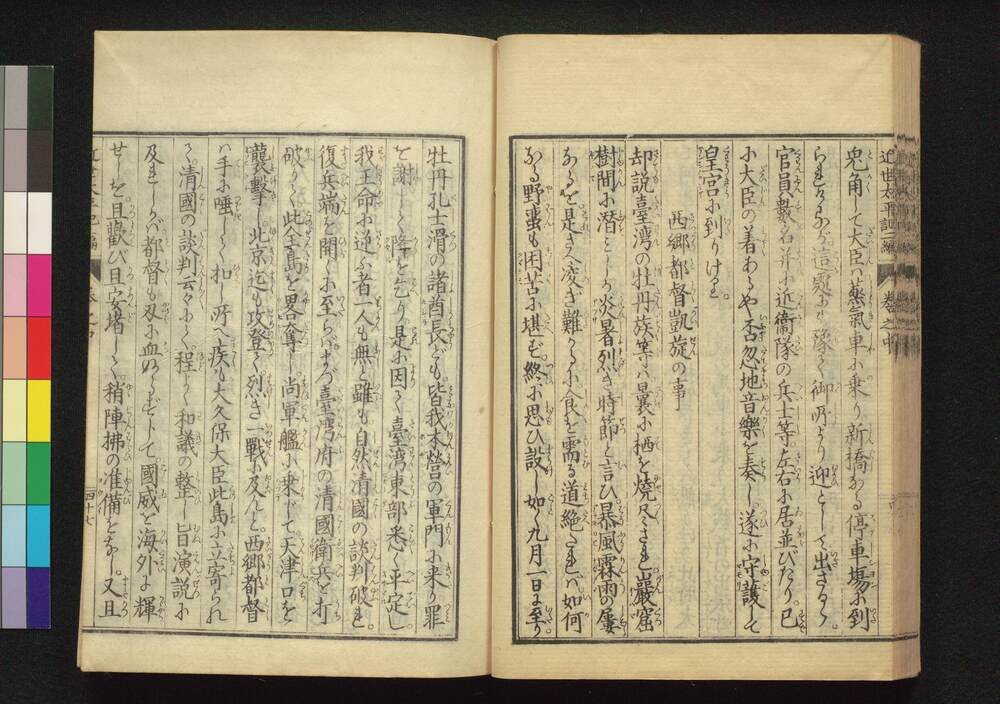 近世太平記二編　巻之中
兎角して大臣ハ蒸氣車に乗り新橋なる停車塲に到
官員數名并に近衞隊の兵士等左右に居並びたり已
に大臣の着あるや否忽地音樂を奏し遂に守護して
皇宮に到りけると
西郷都督凱旋の事
却説臺湾の牡丹族等ハ曩に栖を焼尽され巖窟
樹間に潜みしが炎暑烈き時節と言ひ暴風霖雨の屡
あるを是さへ凌ぎ難かるに食を需る道絶たれバ如何
なる野蛮も困苦に堪ず終に思ひ設し如く九月一日に至り
牡丹扎士滑の諸酋長ども皆我本營の軍門に来り罪
を謝して降を乞り是に因て臺湾東部悉く平定し
我王命に逆ふ者一人も無と雖も自然清國の談判破れ
復兵端を開くに至らバまづ臺湾府の清國衞兵を打
破りて此全島を畧奪し尚軍艦に乗じて天津口を
襲撃し北京迄も攻登て烈き一戰に及んと西郷都督
ハ手に唾して扣し所へ疾も大久保大臣此島に立寄られ
て清國の談判云々にて程よく和議の整し旨演説に
及れしかバ都督も刄に血ぬらずして國威を海外に輝
せしを且歡び且安堵して稍陣拂の准備をなし又且
四十七